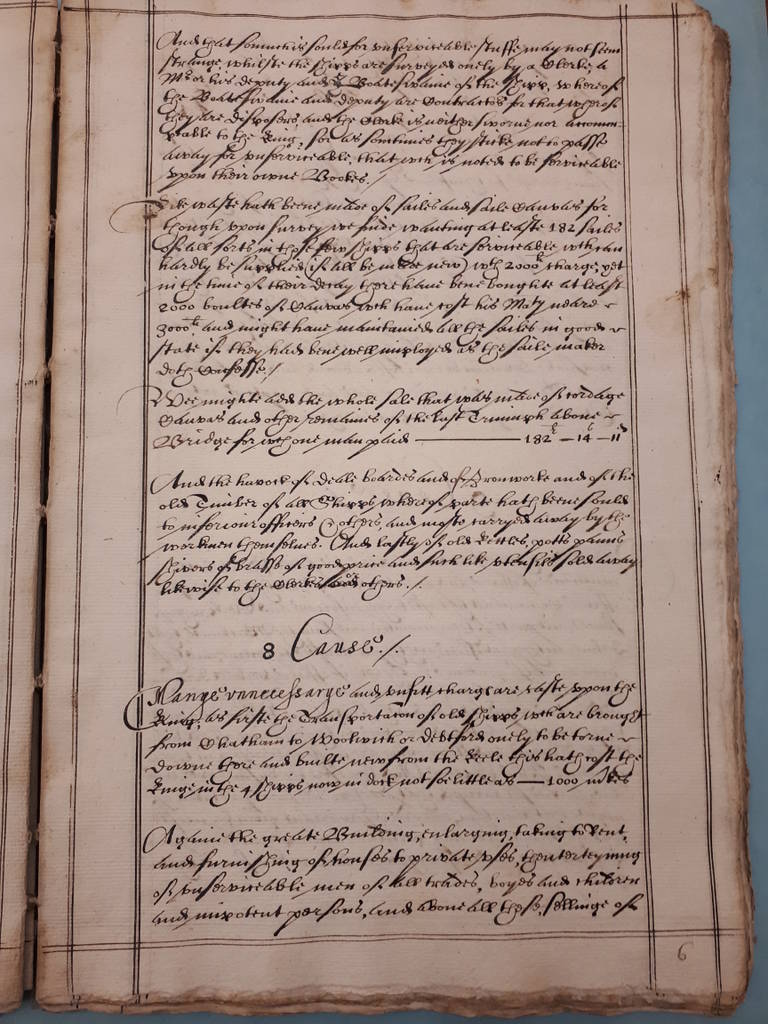 And that somuch is sould for vnserviceable stuffe may not seem
strange, whilste the shipps are surveyed onely by a Clerke, a
Mr or his deputy and ye Boateswaine of the shipp, whereof
the Boateswaine and deputy are Contractors for that whereof
they are disposers, and the Clerke is neither sworne nor accomp-
table to the King, soe as somtimes they sticke not to passe
away for vnserviceable, that wch is noted to be serviceable
vpon their owne Bookes.
Like waste hath beene made of sailes and saile Canvas for
though vpon survey we finde wanting at leaste 182 sailes
of all sorts in those few shipps that are serviceable wch can
hardly be supplied (if all be made new) wth 2000 li charge, yet
in the time of their decay there have bene boughte at least
2000 boultes of Canvas wch have cost his Maty neare
3000 li and might have maintained all the sailes in good
state if they had bene well imployed as the saile maker
doth Confesse /
Wee mighte add the whole sale that was made of cordage
Canvas and other remaines of the last Triumph above
Bridge for wch one man paid 182 li – 14 s – 11 d
And the havock of Deale boardes and of Ironworke and of the
old Timber of all Shipps whereof parte hath beene sould
to inferiour officers & others, and moste carryed away by the
workmen themselves. And lastly of old Kettles, potts panns
shivers of brasse of good price and such like vtensils sold away
likewise to the Clerkes and others. /.
8 Cause. /
Manye vnnecessarye and vnfitt charge are caste vpon the
King, as firste the Transportacon of old shipps wch are brought
from Chatham to Woolwich or Debtford onely to be torne
downe there and builte new from the Keele this hath cost the
Kinge in the 4 shipps now in dock not soe little as — 1000 mkes
Againe the greate Building, enlarging, taking to Rent,
and furnishing of houses to private vses, thenterteyning
of vnserviceable men of all trades, boyes and children
and impotent persons, and above all these, sellinge of
6